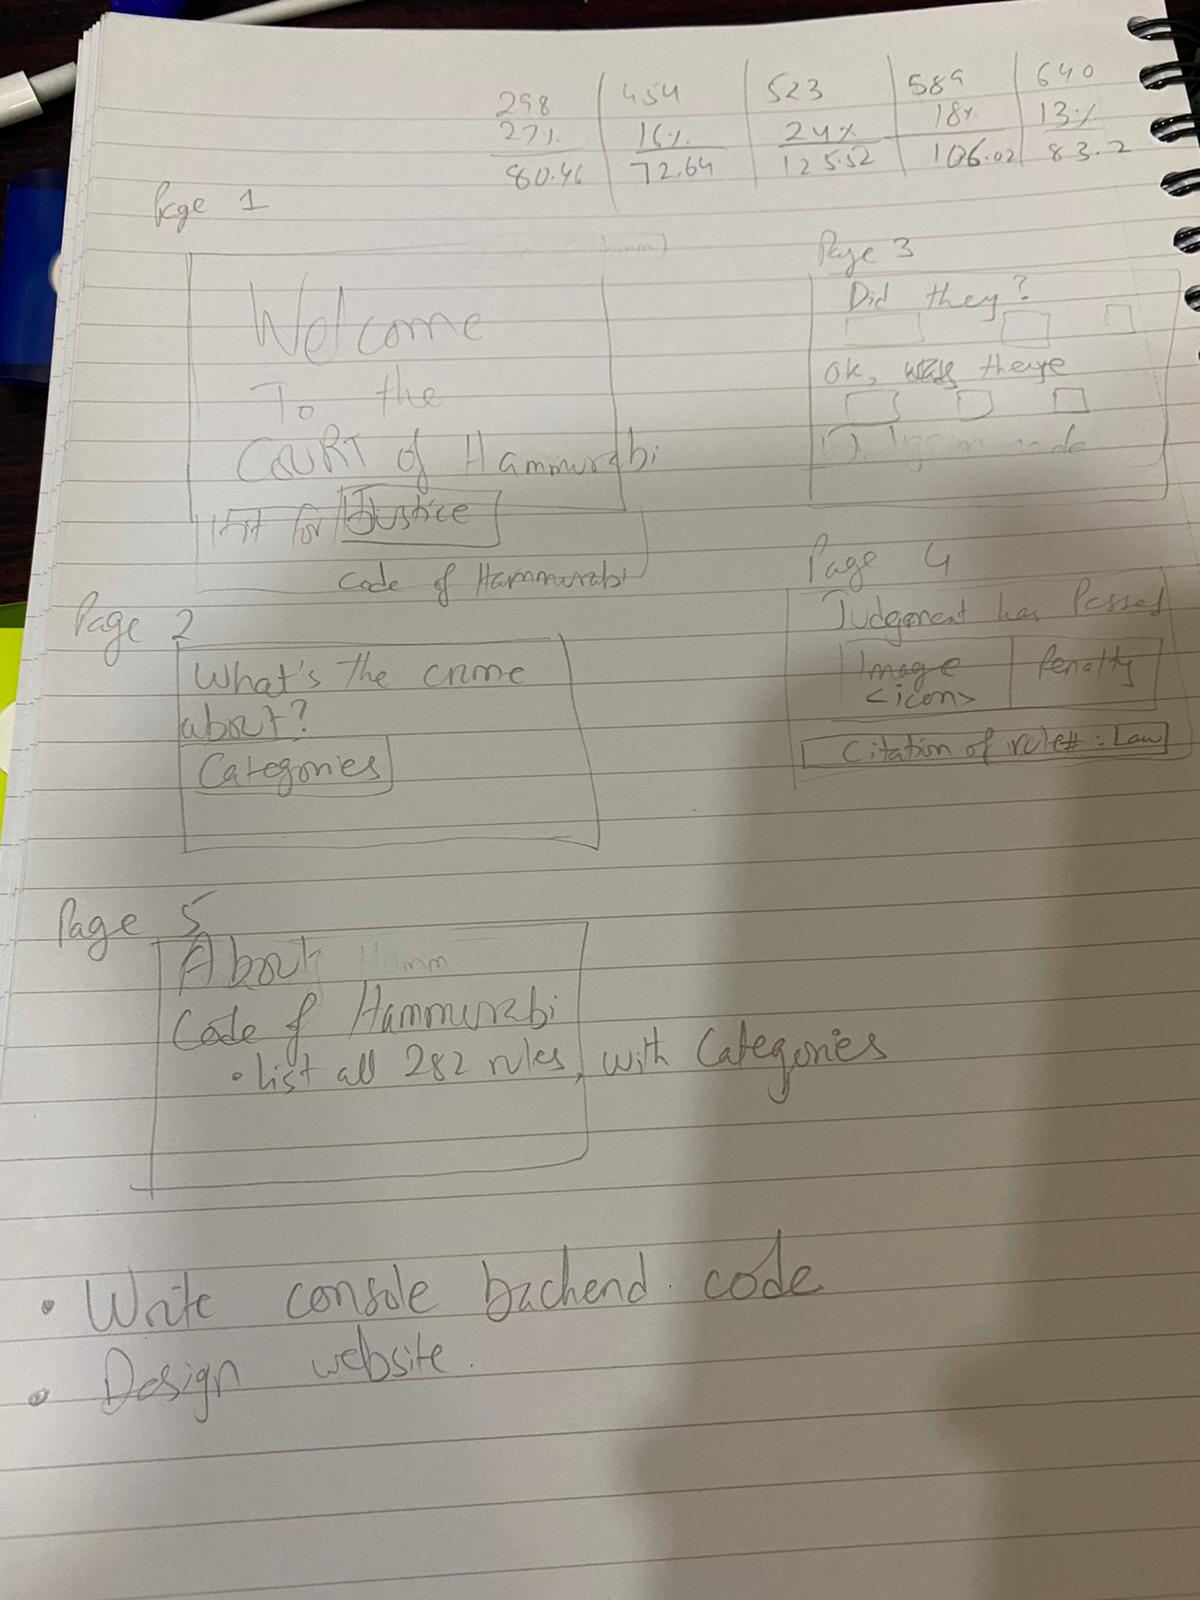 298 | 454 | 523 | 589 | 640
27% | 16% | 24% | 18% | 13%
80.46 | 72.64 | 125.52 | 106.02 | 83.2
Page 1
Welcome
To the
COURT of Hammurabi
for Justice
Code of Hammurabi
Page 2
What's the crime
about?
Categories
Page 3
Did they?
OK, they
Page 4
Judgement has Passed
Image | Penalty
<icon>
Citation of rule# : Law
Page 5
About Hamm
Code of Hammurabi
• List all 282 rules, with Categories
• Write console backend code
• Design website.